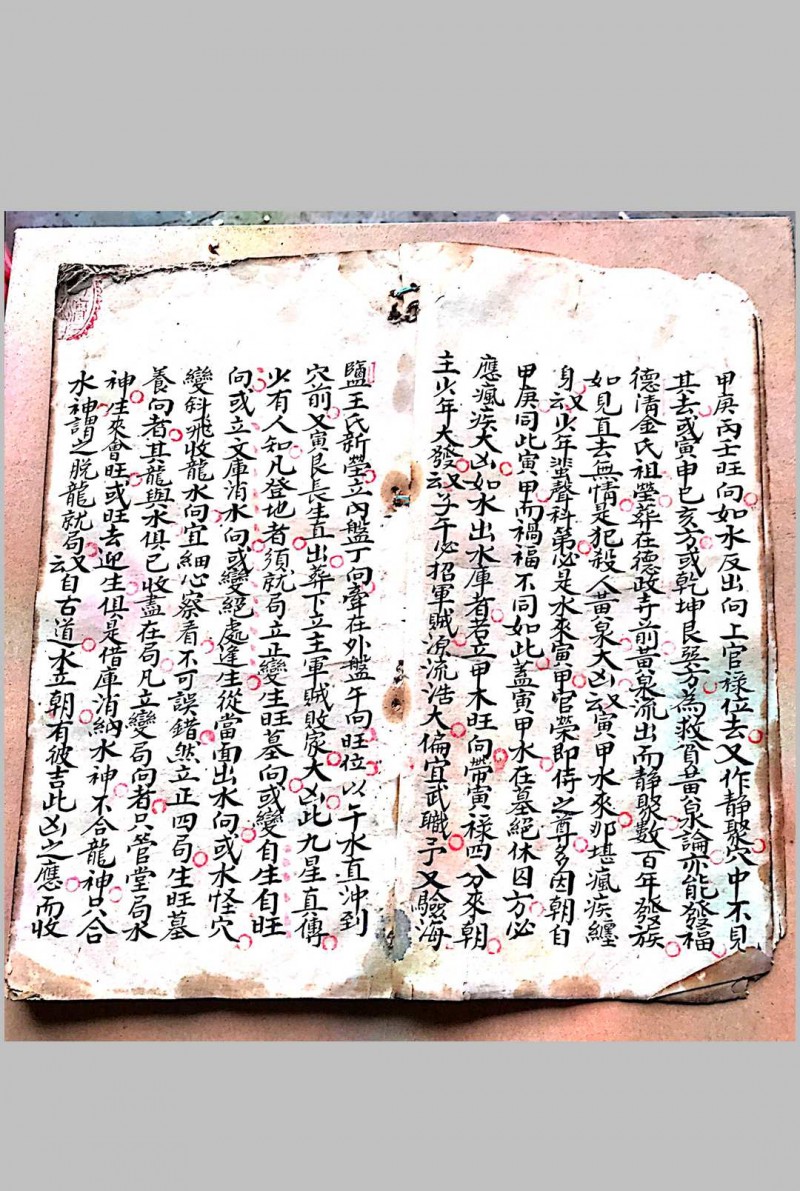 甲庚丙壬旺向如水反出向上官禄位去又作靜聚穴中不見
其去或寅申巳亥方或乾坤艮巽方為救貧黃泉論亦能發福
德清金氏祖塋葬在德政寺前黃泉流出而靜聚數百年發族
如見直去無情是犯殺人黃泉大凶又云寅甲水來那堪瘋疾纏
身又云少年蜚聲科第必是水來寅甲官榮即侍之尊多因朝自
甲庚同此寅甲而禍福不同如此蓋寅甲水在墓絕休囚方必
應瘋疾大凶如水出水庫者若立甲木旺向帶寅禄四分來朝
主少年大發又云子午必招軍賊源流浩大偏宜武職予又驗海
鹽王氏新塋立內盤丁向牽在外盤午向旺位以午水直沖到
穴前又寅艮長生直出葬下立主軍賊敗家大凶此九星真傳
少有人知凡登地者須就局立正變生旺墓向或變自生自旺
向或立文庫消水向或變絕處逢生從當面出水向或水怪穴
變斜飛收龍水向宜細心察看不可誤錯然立正四局生旺墓
養向者其龍與水俱已收盡在局凡立變局向者只管堂局水
神生來會旺或旺去迎生俱是借庫消納水神不合龍神只合
水神謂之脫龍就局又云自古道水立朝有彼吉此凶之應而收